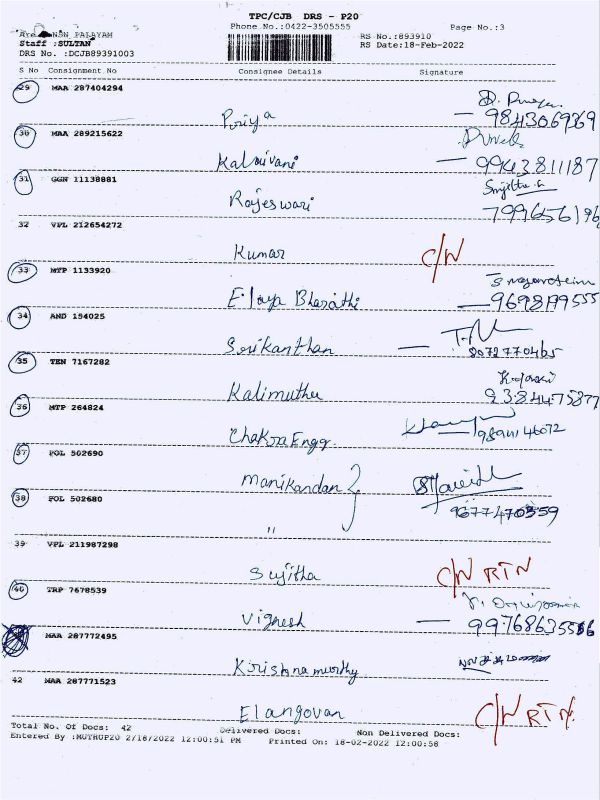 TPC/CJB DRS - P20
Phone No.:0422-3505555 Page No.:3
PALAYAM RS No.:893910
Staff :SULTAN RS Date:18-Feb-2022
DRS No. :DCJB89391003
S No Consignment No Consignee Details Signature
29 MAA 287404294
Priya 9843069369
30 MAA 289215622
Kalaivani
31 GGN 11138881
Rajeswari 799656196
32 VPL 212654272
Kumar C/N
33 MTP 1133920
Elaya Bharathi
34 AND 154025
Srikanthan
35 TEN 7167282
Kalimuthu
36 MTP 264824
Chakra Engg.
37 POL 502690
Manikandan
38 POL 502680
"
39 VPL 211987298
Sujitha C/N RTN
40 TRP 7678539
Vignesh
MAA 287772495
Krishnamurthy
42 MAA 287771523
Elangovan C/N RTN
Total No. Of Docs: 42 Delivered Docs: Non Delivered Docs:
Entered By :MUTHUP20 2/18/2022 12:00:51 PM Printed On: 18-02-2022 12:00:58